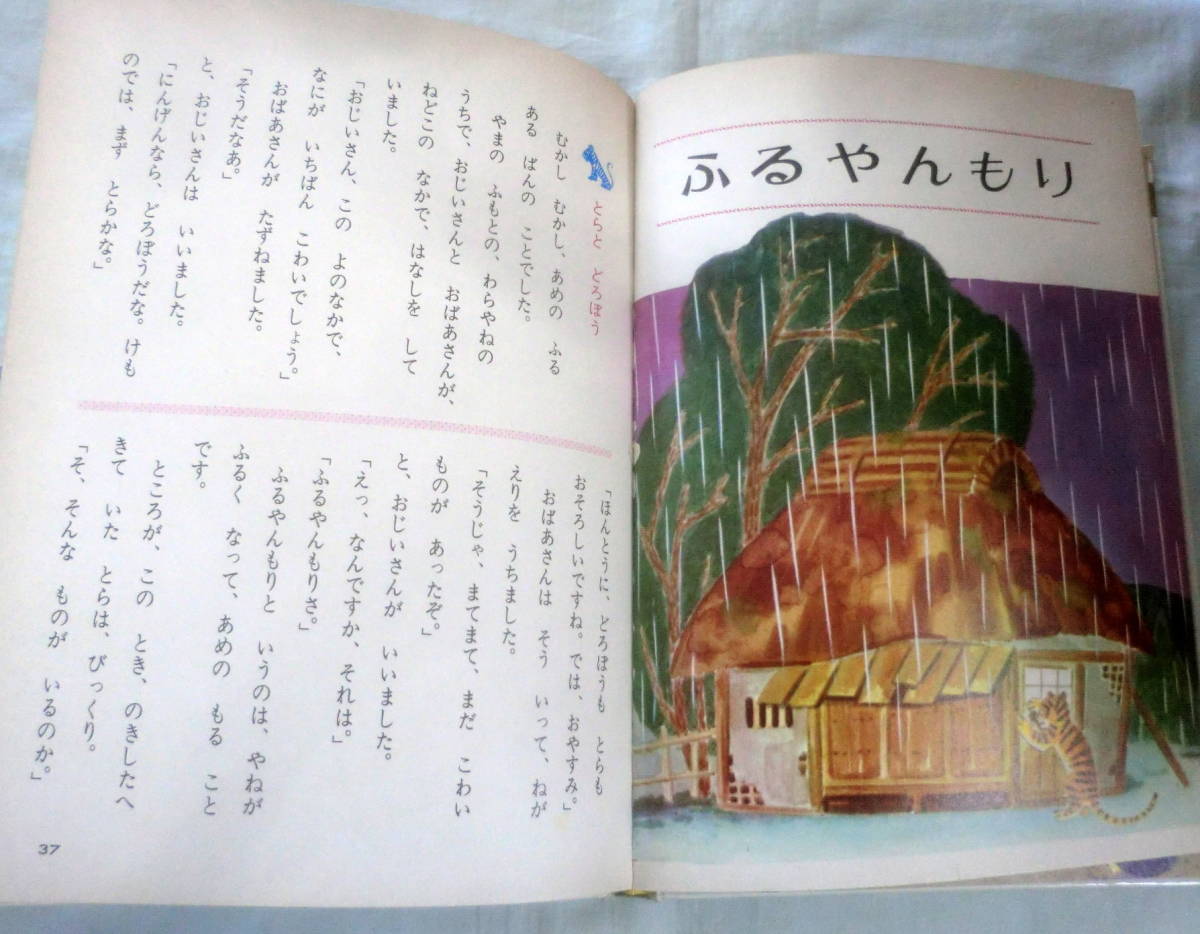 ふるやんもり
とらと どろぼう
むかし むかし、あめの ふる
ある ばんの ことでした。
やまの ふもとの、わらやねの
うちで、おじいさんと おばあさんが、
ねどこの なかで、はなしを して
いました。
「おじいさん、この よのなかで、
なにが いちばん こわいでしょう。」
おばあさんが たずねました。
「そうだなあ。」
と、おじいさんは いいました。
「にんげんなら、どろぼうだな。けも
のでは、まず とらかな。」
「ほんとうに、どろぼうも とらも
おそろしいですね。では、おやすみ。」
おばあさんは そう いって、ねが
えりを うちました。
「そうじゃ、まてまて、まだ こわい
ものが あったぞ。」
と、おじいさんが いいました。
「えっ、なんですか、それは。」
「ふるやんもりさ。」
ふるやんもりと いうのは、やねが
ふるく なって、あめの もる こと
です。
ところが、この とき、のきしたへ
きて いた とらは、びっくり。
「そ、そんな ものが いるのか。」
37